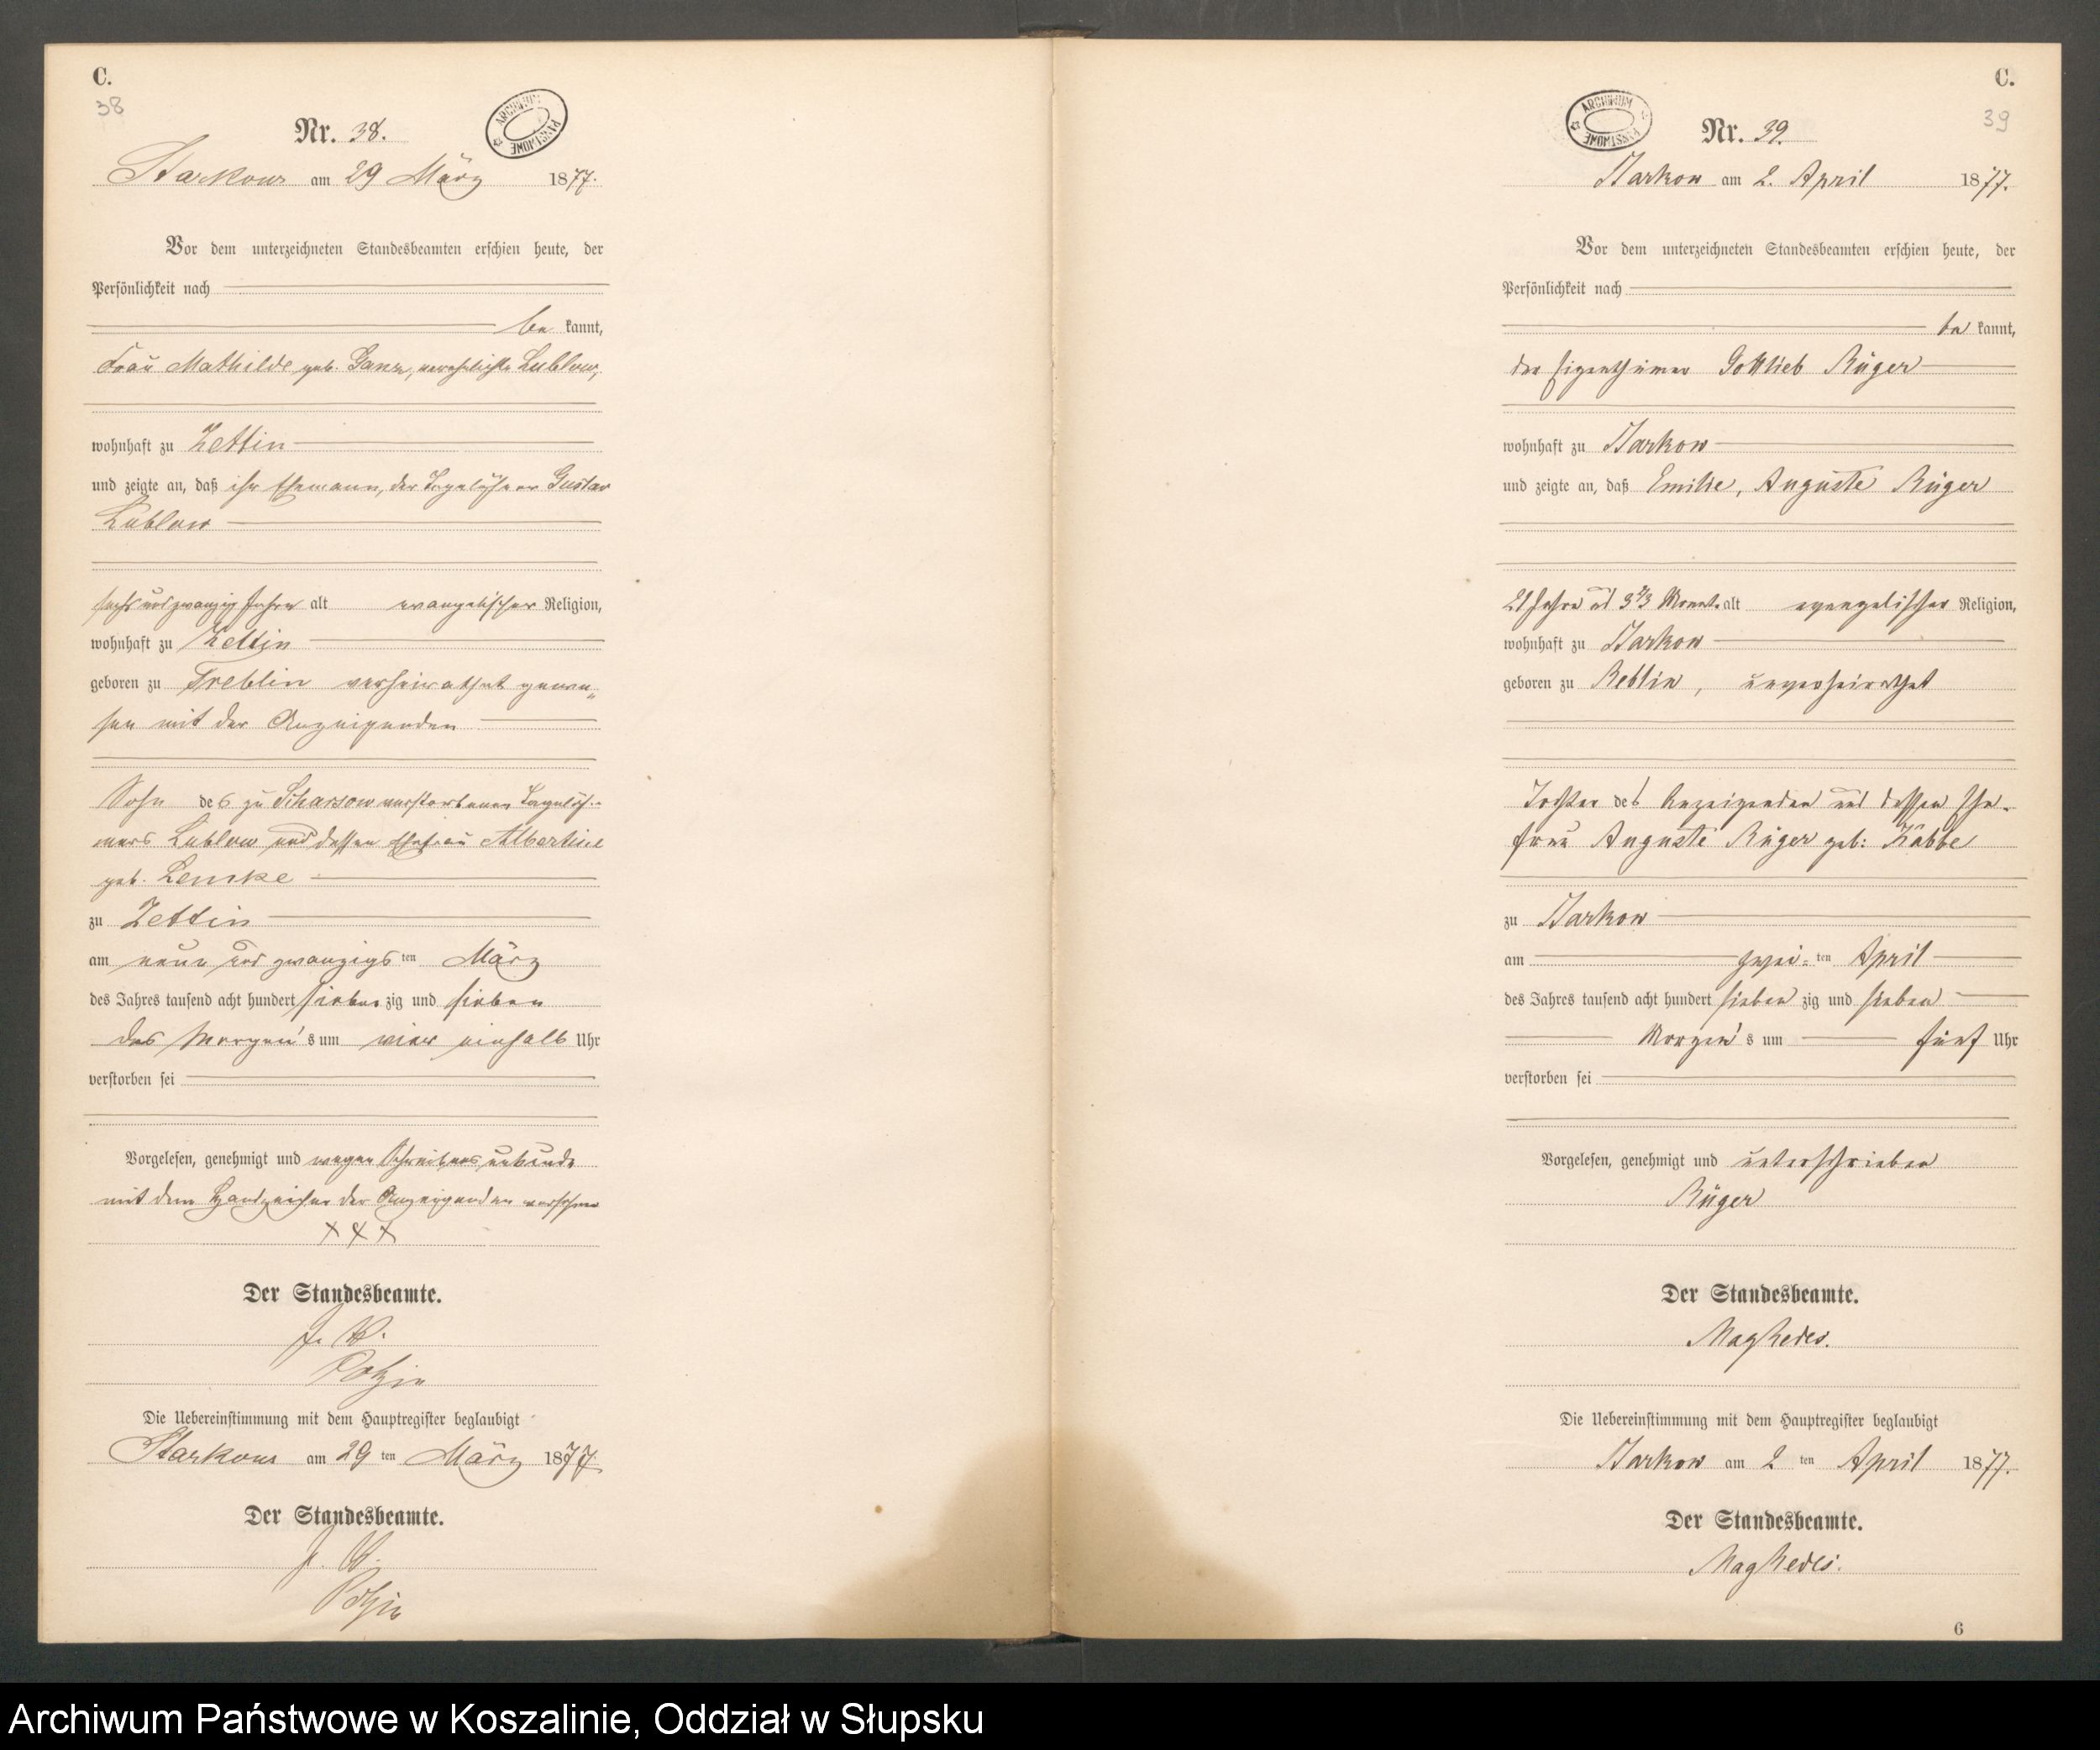 C.
38
Nr. 38.
ARCHIWUM PAŃSTWOWE
Starkow am 29 März 1877.
Vor dem unterzeichneten Standesbeamten erschien heute, der
Persönlichkeit nach
be kannt,
Frau Mathilde geb. Ganz, verehelichte Lublow,
wohnhaft zu Zettin
und zeigte an, daß ihr Ehemann, der Tagelöhner Gustav
Lublow
sechs und zwanzig Jahre alt evangelischer Religion,
wohnhaft zu Zettin
geboren zu Treblin verheirathet gewe„
sen mit der Anzeigenden
Sohn des zu Scharsow verstorbenen Tagelöh-
ners Lublow und dessen Ehefrau Albertine
geb. Lemke
zu Zettin
am neun und zwanzigsten März
des Jahres tausend acht hundert sieben zig und sieben
des Morgen's um vier einhalb Uhr
verstorben sei
Vorgelesen, genehmigt und wegen Schreibens unkunde
mit dem Handzeichen der Anzeigenden versehen
+++
Der Standesbeamte.
J. V.
Die Uebereinstimmung mit dem Hauptregister beglaubigt
Starkow am 29 ten März 1877.
Der Standesbeamte.
J. V.
C.
39
Nr. 39.
ARCHIWUM PAŃSTWOWE
Starkow am 2. April 1877.
Vor dem unterzeichneten Standesbeamten erschien heute, der
Persönlichkeit nach
be kannt,
der Eigenthümer Gottlieb Rüger
wohnhaft zu Starkow
und zeigte an, daß Emilie, Auguste Rüger
21 Jahre und 3 2/3 Monate alt evangelischer Religion,
wohnhaft zu Starkow
geboren zu Reblin, unverheirathet
Tochter des Anzeigenden und dessen Ehe-
frau Auguste Rüger geb: Kabbe
zu Starkow
am zwei-ten April
des Jahres tausend acht hundert sieben zig und sieben
Morgen's um fünf Uhr
verstorben sei
Vorgelesen, genehmigt und unterschrieben
Rüger
Der Standesbeamte.
Die Uebereinstimmung mit dem Hauptregister beglaubigt
Starkow am 2 ten April 1877.
Der Standesbeamte.
6
Archiwum Państwowe w Koszalinie, Oddział w Słupsku